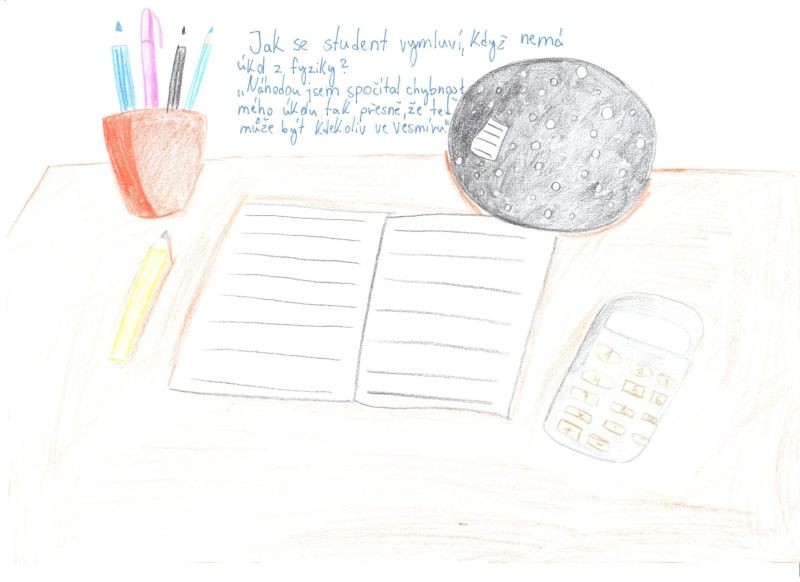 Jak se student vymluví, když nemá
úkol z fyziky?
„Náhodou jsem spočítal chybnost
mého úkolu tak přesně, že teď
může být kdekoliv ve vesmíru."
1 2 3
4 5 6